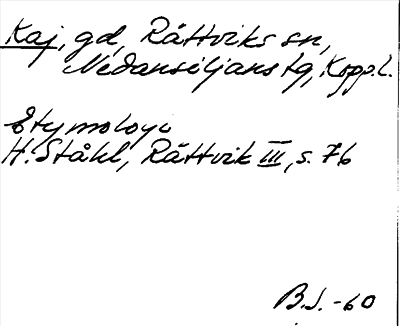 Kaj, gd, Rättviks sn,
Nedansiljans tg, Kopp.l.
Etymologi
H. Ståhl, Rättvik III, s. 76
B.J. -60